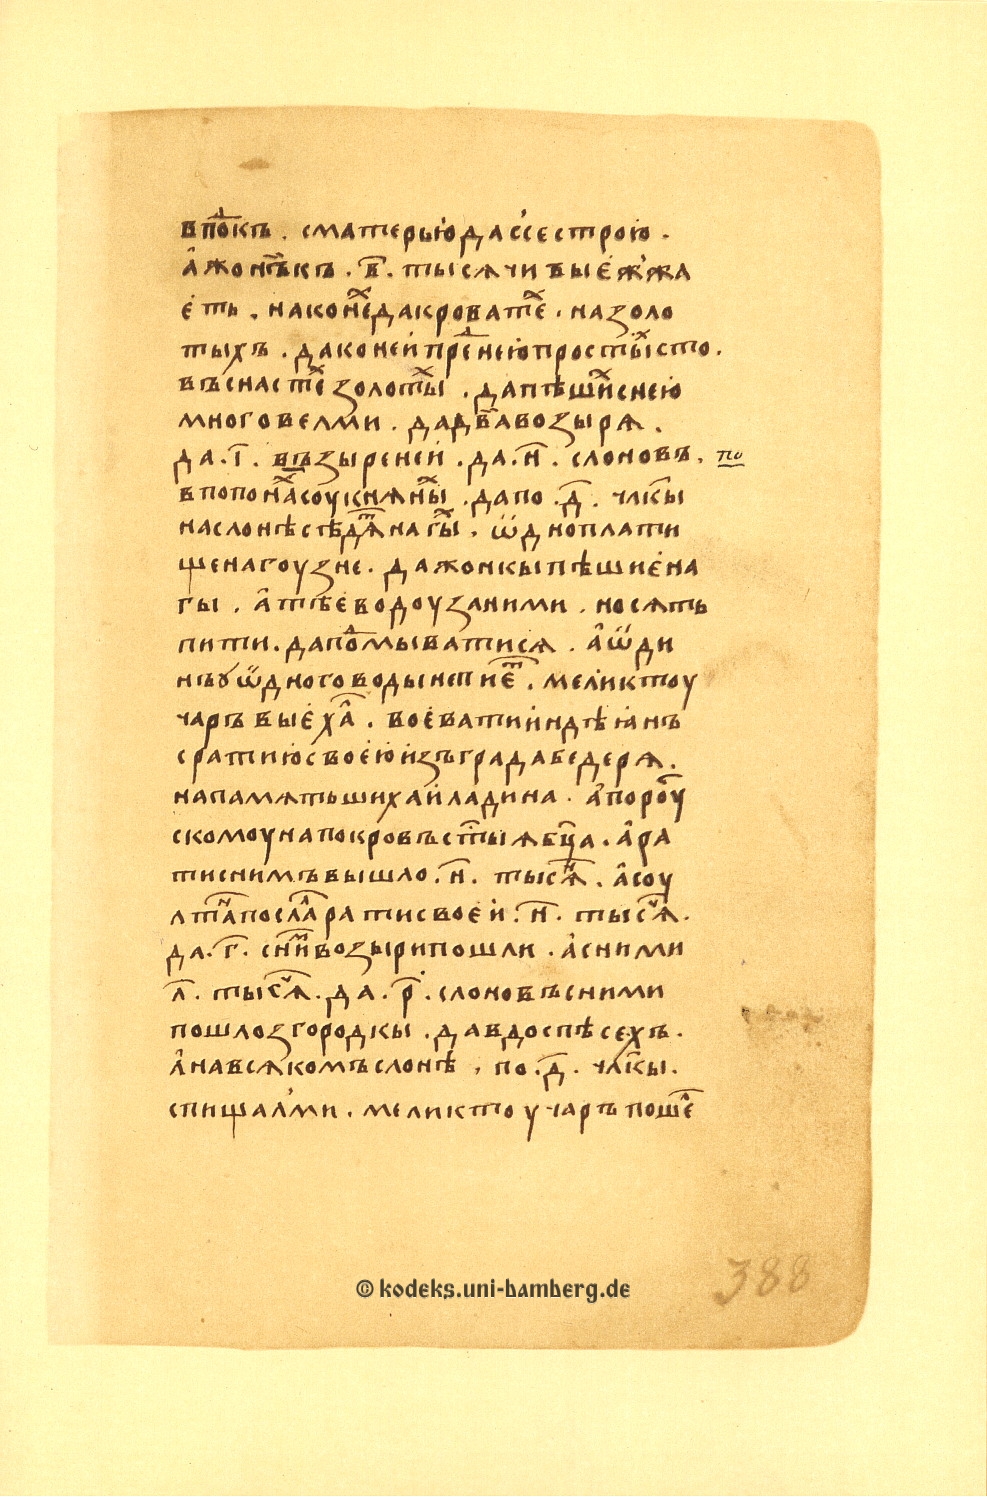 впⷣокъ . сматерьюдассестрою .
ажонⷪ҇къ . в҃ . тысячивыежжа
еть . наконⷯедакроватⷯе . назоло
тыхъ . даконейпрⷣенеюпростыⷯсто .
въснастⷯе золотⷯы . дапѣшⷯиснею
многовелми . дадвавозыря .
да . і҃ . възыреней . да . н҃ . слоновъ . по
впопонⷯасоукнянⷯы . дапо . д҃ . члк҃ы
наслонѣсѣдⷮянагⷯы . ѿдноплати
щенагоузне . дажонкыпѣшиена
гы . атѣеводоузаними . носять
пити . дапоⷣмыватися . аѡди
нъуѡдноговодынепиеⷮ . меликтоу
чаръвыехаⷧ . воеватииндѣянъ
сратиюсвоеюизъградабедеря .
напамятьшихаиладина . апороуⷭ
скомоунапокровъст҃ыябц҃а . ара
тиснимъвышло . н҃ . тысⷱя . асоу
лтⷩапослаⷧратисвоеи . н҃ . тысⷱя .
да . г҃ . сниⷨвозырипошли . асними
л҃ . тысⷱя . да . р҃ . слоновъсними
пошлозгородкы . давдоспѣсехъ .
анавсякомъслонѣ , по . д҃ . члк҃ы .
спищалми . меликтоучаръпошеⷧ
388
© kodeks.uni-bamberg.de